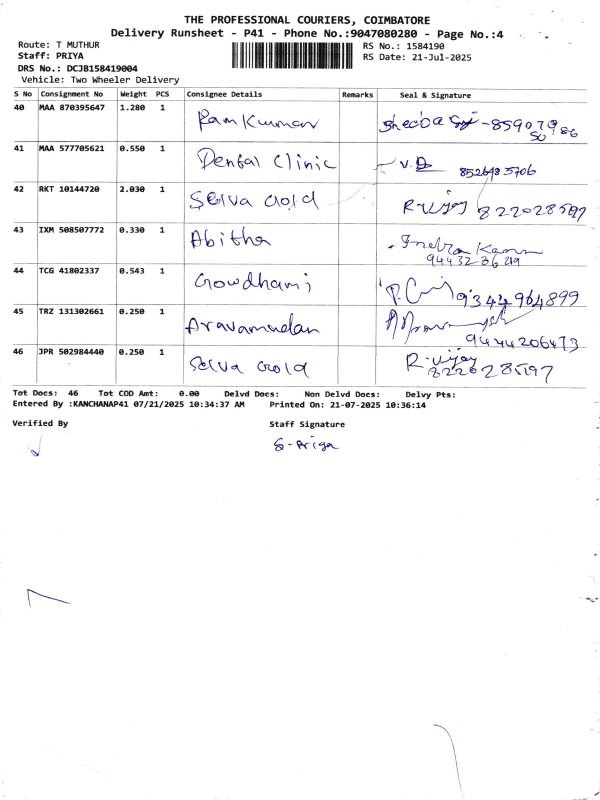 THE PROFESSIONAL COURIERS, COIMBATORE
Delivery Runsheet - P41 - Phone No.:9047080280 - Page No.:4
Route: T MUTHUR RS No.: 1584190
Staff: PRIYA RS Date: 21-Jul-2025
DRS No.: DCJB158419004
Vehicle: Two Wheeler Delivery
S No Consignment No Weight PCS Consignee Details Remarks Seal & Signature
40 MAA 870395647 1.280 1 Ram Kumar
41 MAA 577705621 0.550 1 Dental Clinic
42 RKT 10144720 2.030 1 Selva Gold R-vijay 822028597
43 IXM 508507772 0.330 1 Abitha Indra
44 TCG 41802337 0.543 1 Gowdhami 9344964899
45 TRZ 131302661 0.250 1 Aravamudan 9444206473
46 JPR 502984440 0.250 1 Selva Gold R-vijay 822028597
Tot Docs: 46 Tot COD Amt: 0.00 Delvd Docs: Non Delvd Docs: Delvy Pts:
Entered By :KANCHANAP41 07/21/2025 10:34:37 AM Printed On: 21-07-2025 10:36:14
Verified By Staff Signature
S-Priya